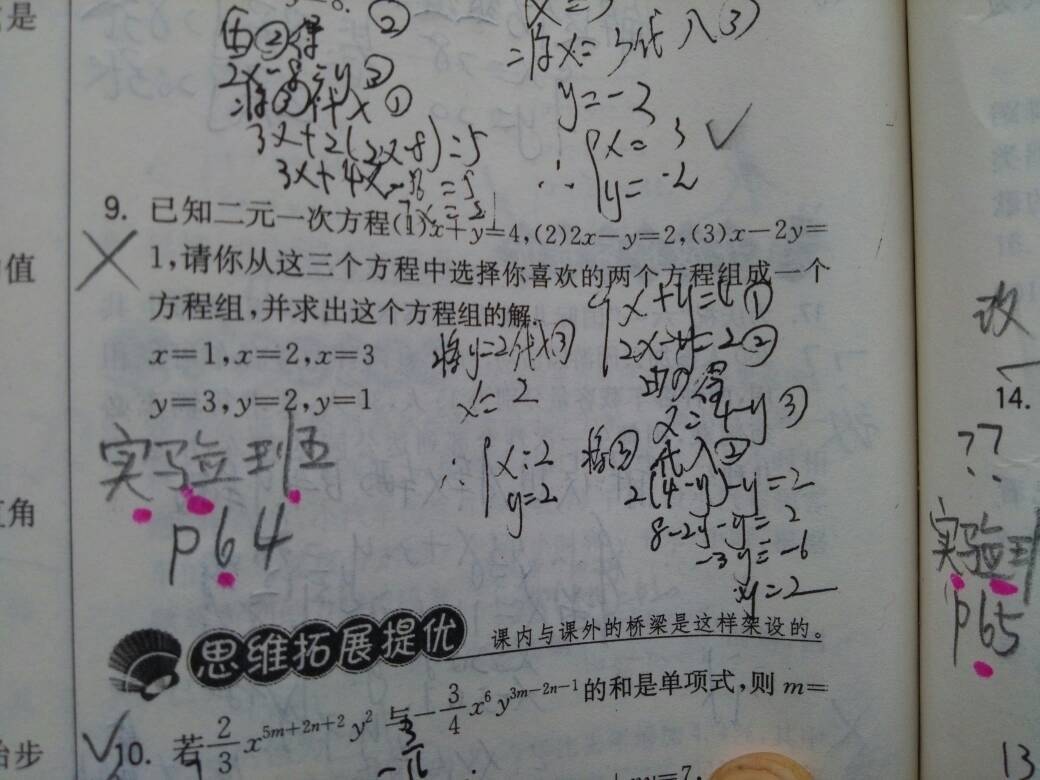 由②得 ②
2x-8=y ③
将③代入①
3x+2(2x-8)=5
3x+4x-16=5
7x=21
将x=3代入③
y=-2
∴{x=3
y=-2
9. 已知二元一次方程(1)x+y=4,(2)2x-y=2,(3)x-2y=
1,请你从这三个方程中选择你喜欢的两个方程组成一个
方程组,并求出这个方程组的解.
x=1,x=2,x=3
y=3,y=2,y=1
{x+y=4 ①
2x-y=2 ②
由①得
x=4-y ③
将③代入②
2(4-y)-y=2
8-2y-y=2
-3y=-6
y=2
将y=2代入③
x=2
∴{x=2
y=2
实验班
p64
思维拓展提优
课内与课外的桥梁是这样架设的。
10. 若 2/3 x^{5m+2n+2} y^2 与 -3/4 x^6 y^{3m-2n-1} 的和是单项式,则 m=
是
值
角
步
改
14.
??
实验班
p65
13